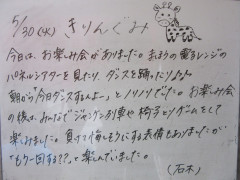 5/30(水) きりんぐみ
今日は、お楽しみ会がありました。まほうの電子レンジの
パネルシアターを見たり、ダンスを踊ったりしました。
朝から「今日ダンスするんよー」とノリノリでした。お楽しみ会
の後は、みんなでジャンケン列車や椅子とりゲームをして
楽しみました。負けて悔しそうにする表情もありましたが
"もう一回する??"と楽しんでいました。
(石木)